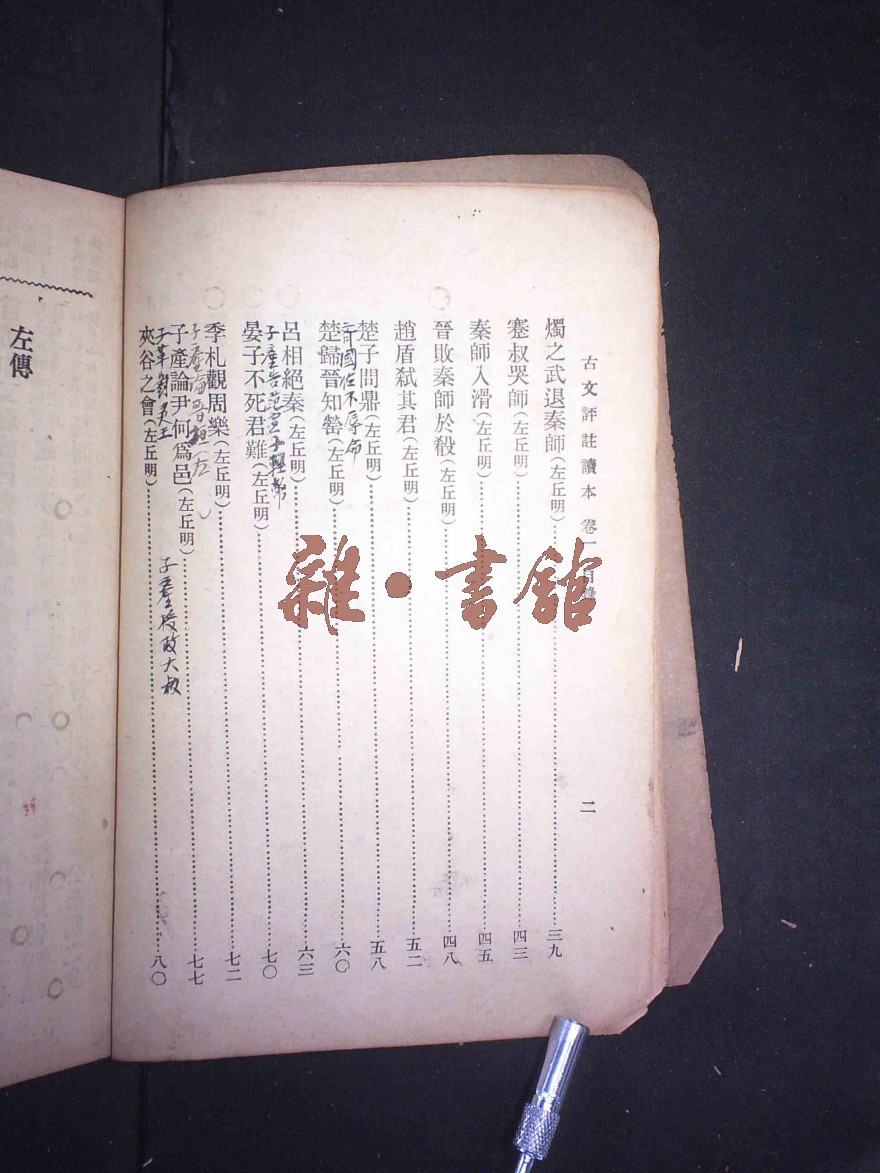 古文評註讀本 卷一 目錄 二
燭之武退秦師(左丘明)……三九
蹇叔哭師(左丘明)……四三
秦師入滑(左丘明)……四五
晉敗秦師於殽(左丘明)……四八
趙盾弒其君(左丘明)……五二
楚子問鼎(左丘明)……五八
國佐不辱命
楚歸晉知罃(左丘明)……六〇
呂相絕秦(左丘明)……六三
子產告范宣子輕幣
晏子不死君難(左丘明)……七〇
季札觀周樂(左丘明)……七二
子產論尹何為邑(左丘明)……七七
子革對灵王
子產授政大叔
夾谷之會(左丘明)……八〇
左傳
雜·書館